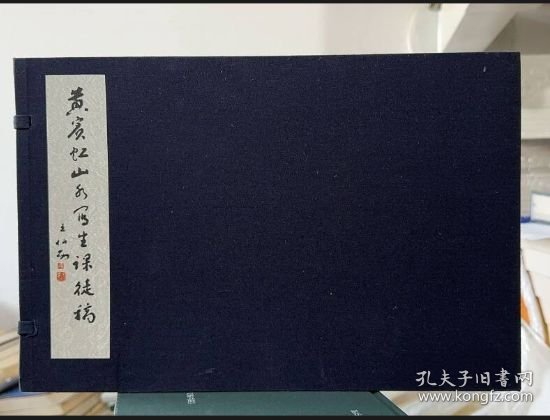 黄宾虹山水写生课徒稿
孔夫子旧书网
www.kongfz.com